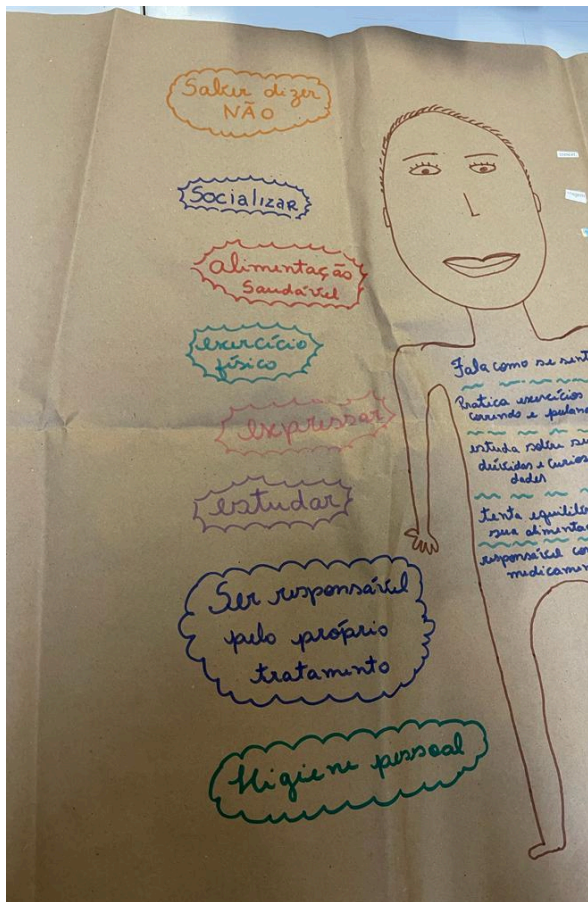 Saber dizer
NÃO
Socializar
alimentação
saudável
exercício
físico
expressar
estudar
Ser responsável
pelo próprio
tratamento
Higiene pessoal
Fala como se sent
Pratica exercícios
correndo e puland
estuda sobre su
dúvidas e curios
dades
tenta equilib
sua alimenta
responsável co
medicamen